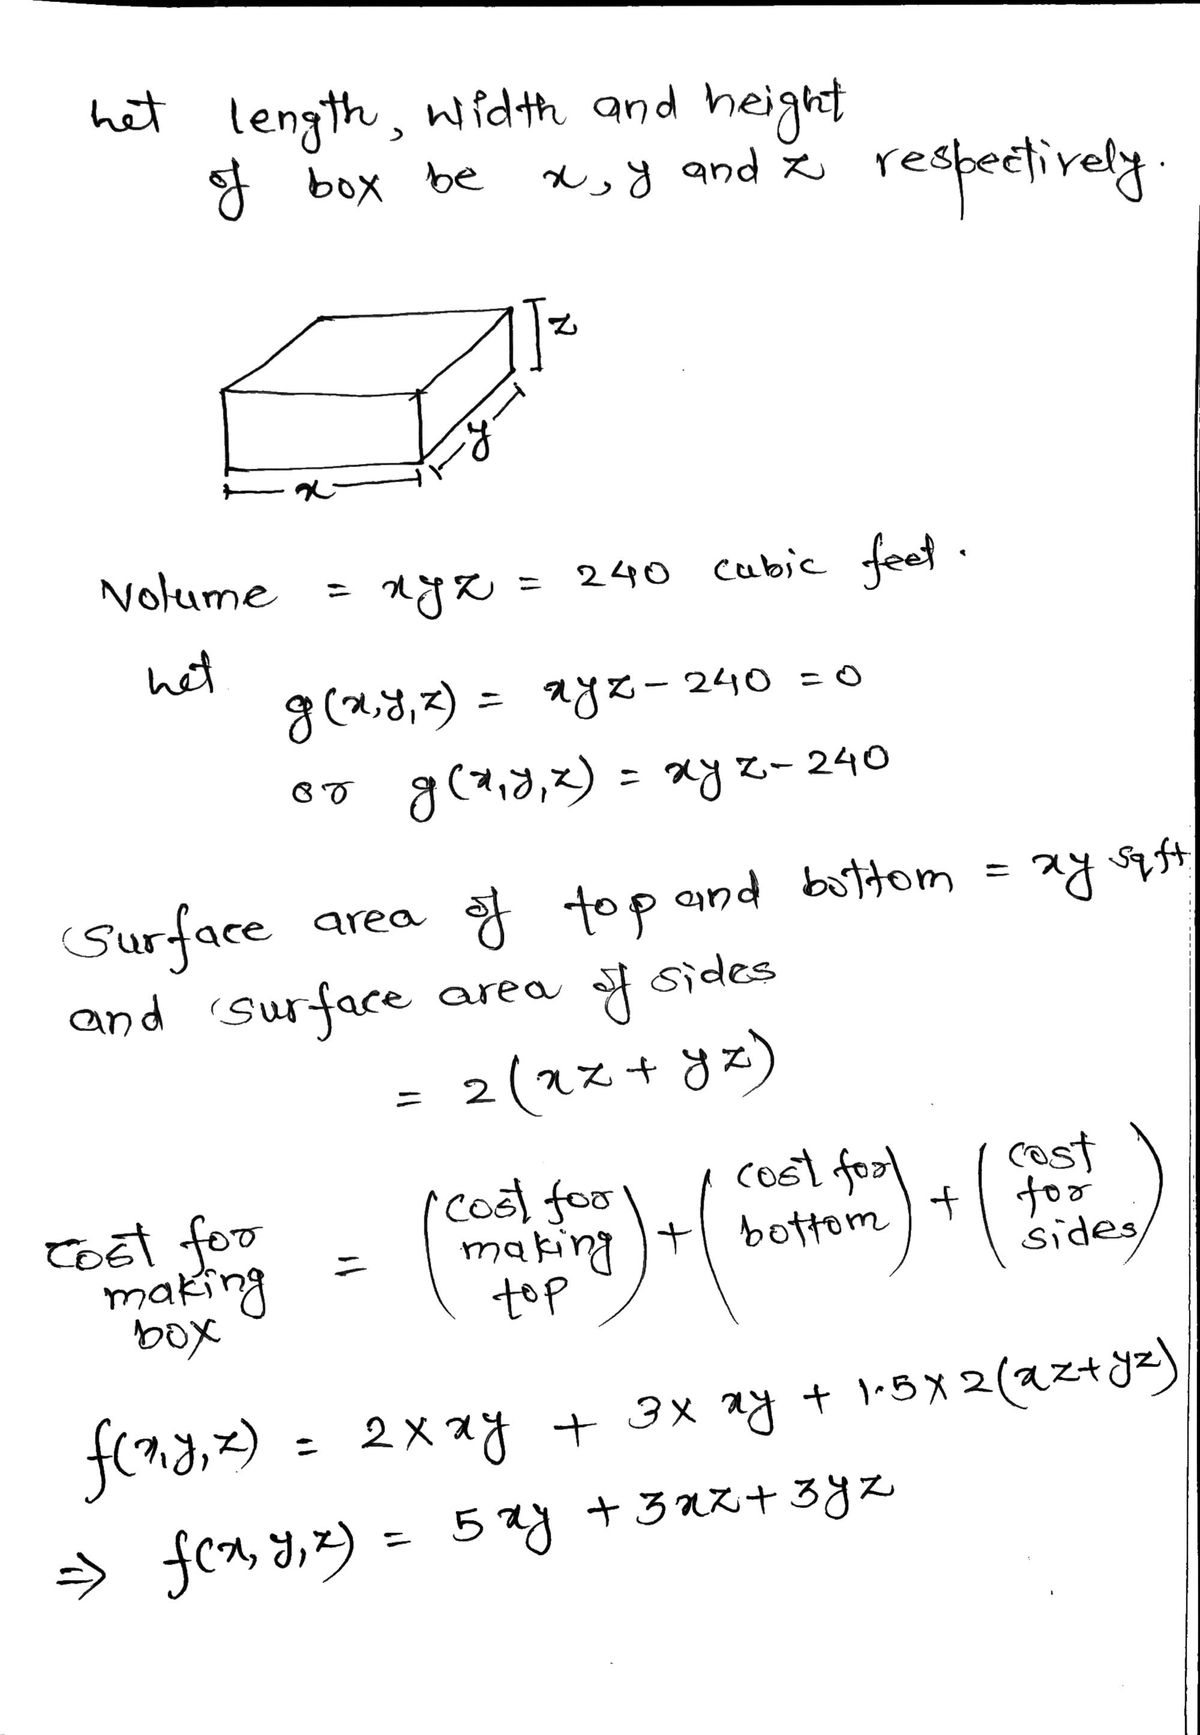 Let length, width and height
of box be x, y and z respectively.
z
y
x
Volume = xyz = 240 cubic feet.
Let
g(x,y,z) = xyz - 240 = 0
or g(x,y,z) = xyz - 240
Surface area of top and bottom = xy sqft
and surface area of sides
= 2(xz + yz)
Cost for making box = (cost for making top) + (cost for bottom) + (cost for sides)
f(x,y,z) = 2 × xy + 3 × xy + 1.5 × 2(xz + yz)
⇒ f(x, y, z) = 5xy + 3xz + 3yz